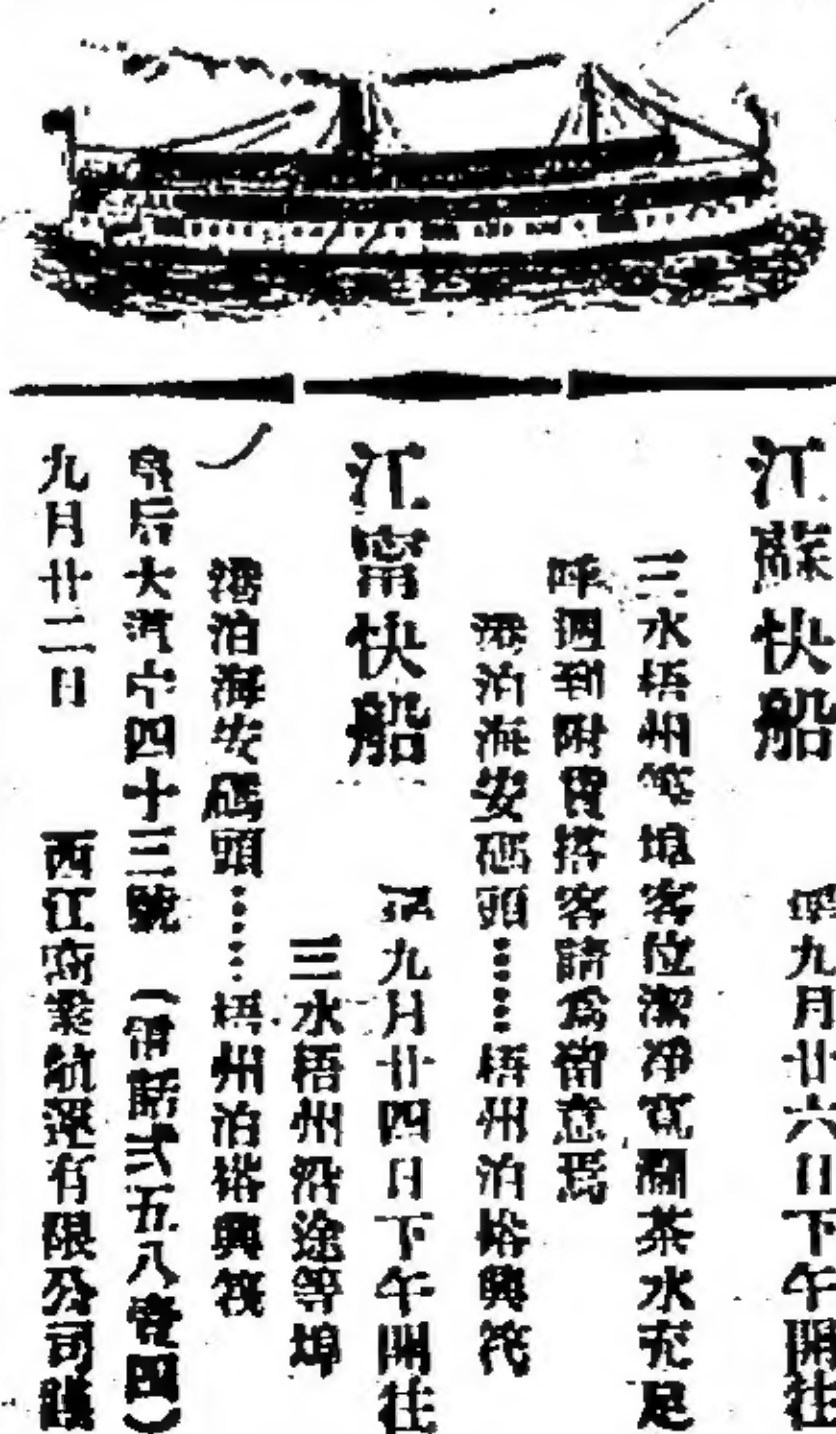 江蘇快船 九月廿六日下午開往
三水梧州等埠客位潔净寬闊茶水充足
呼週到附貨搭客請爲留意焉
港泊海安碼頭……梧州泊 興筏
江甯快船 九月廿四日下午開往
三水梧州沿途等埠
港泊海安碼頭……梧州泊 興筏
皇后大道中四十三號 (電話弍五八壹四)
九月廿二日 西江商業航運有限公司謹